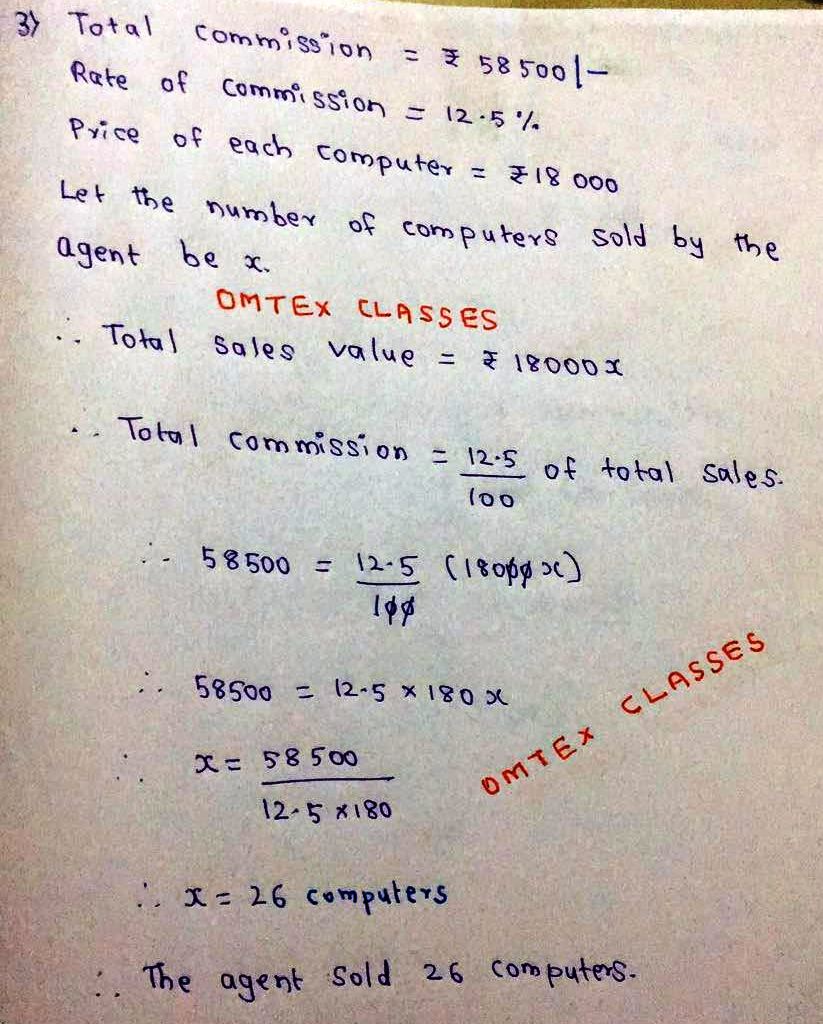 3) Total commission = ₹ 58500/-
Rate of commission = 12.5 %
Price of each computer = ₹18 000
Let the number of computers sold by the
agent be x.
OMTEX CLASSES
∴ Total sales value = ₹ 18000x
∴ Total commission = 12.5/100 of total sales.
∴ 58500 = 12.5/100 (18000x)
∴ 58500 = 12.5 × 180x
∴ x = 58500/12.5 × 180
OMTEX CLASSES
∴ x = 26 computers
∴ The agent sold 26 computers.